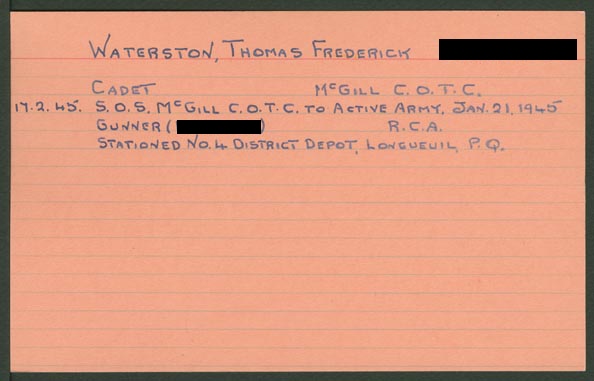 WATERSTON, THOMAS FREDERICK
CADET McGILL C.O.T.C.
17.2.45. S.O.S. McGILL C.O.T.C. TO ACTIVE ARMY, JAN. 21, 1945
GUNNER ( ) R.C.A.
STATIONED NO. 4 DISTRICT DEPOT, LONGUEUIL, P.Q.